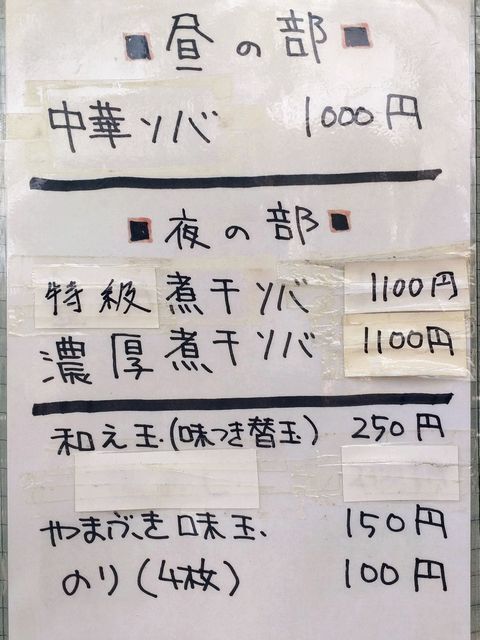 ■昼の部■
中華ソバ 1000円
■夜の部■
特級煮干ソバ 1100円
濃厚煮干ソバ 1100円
和え玉(味つき替玉) 250円
やまぶき味玉 150円
のり(4枚) 100円